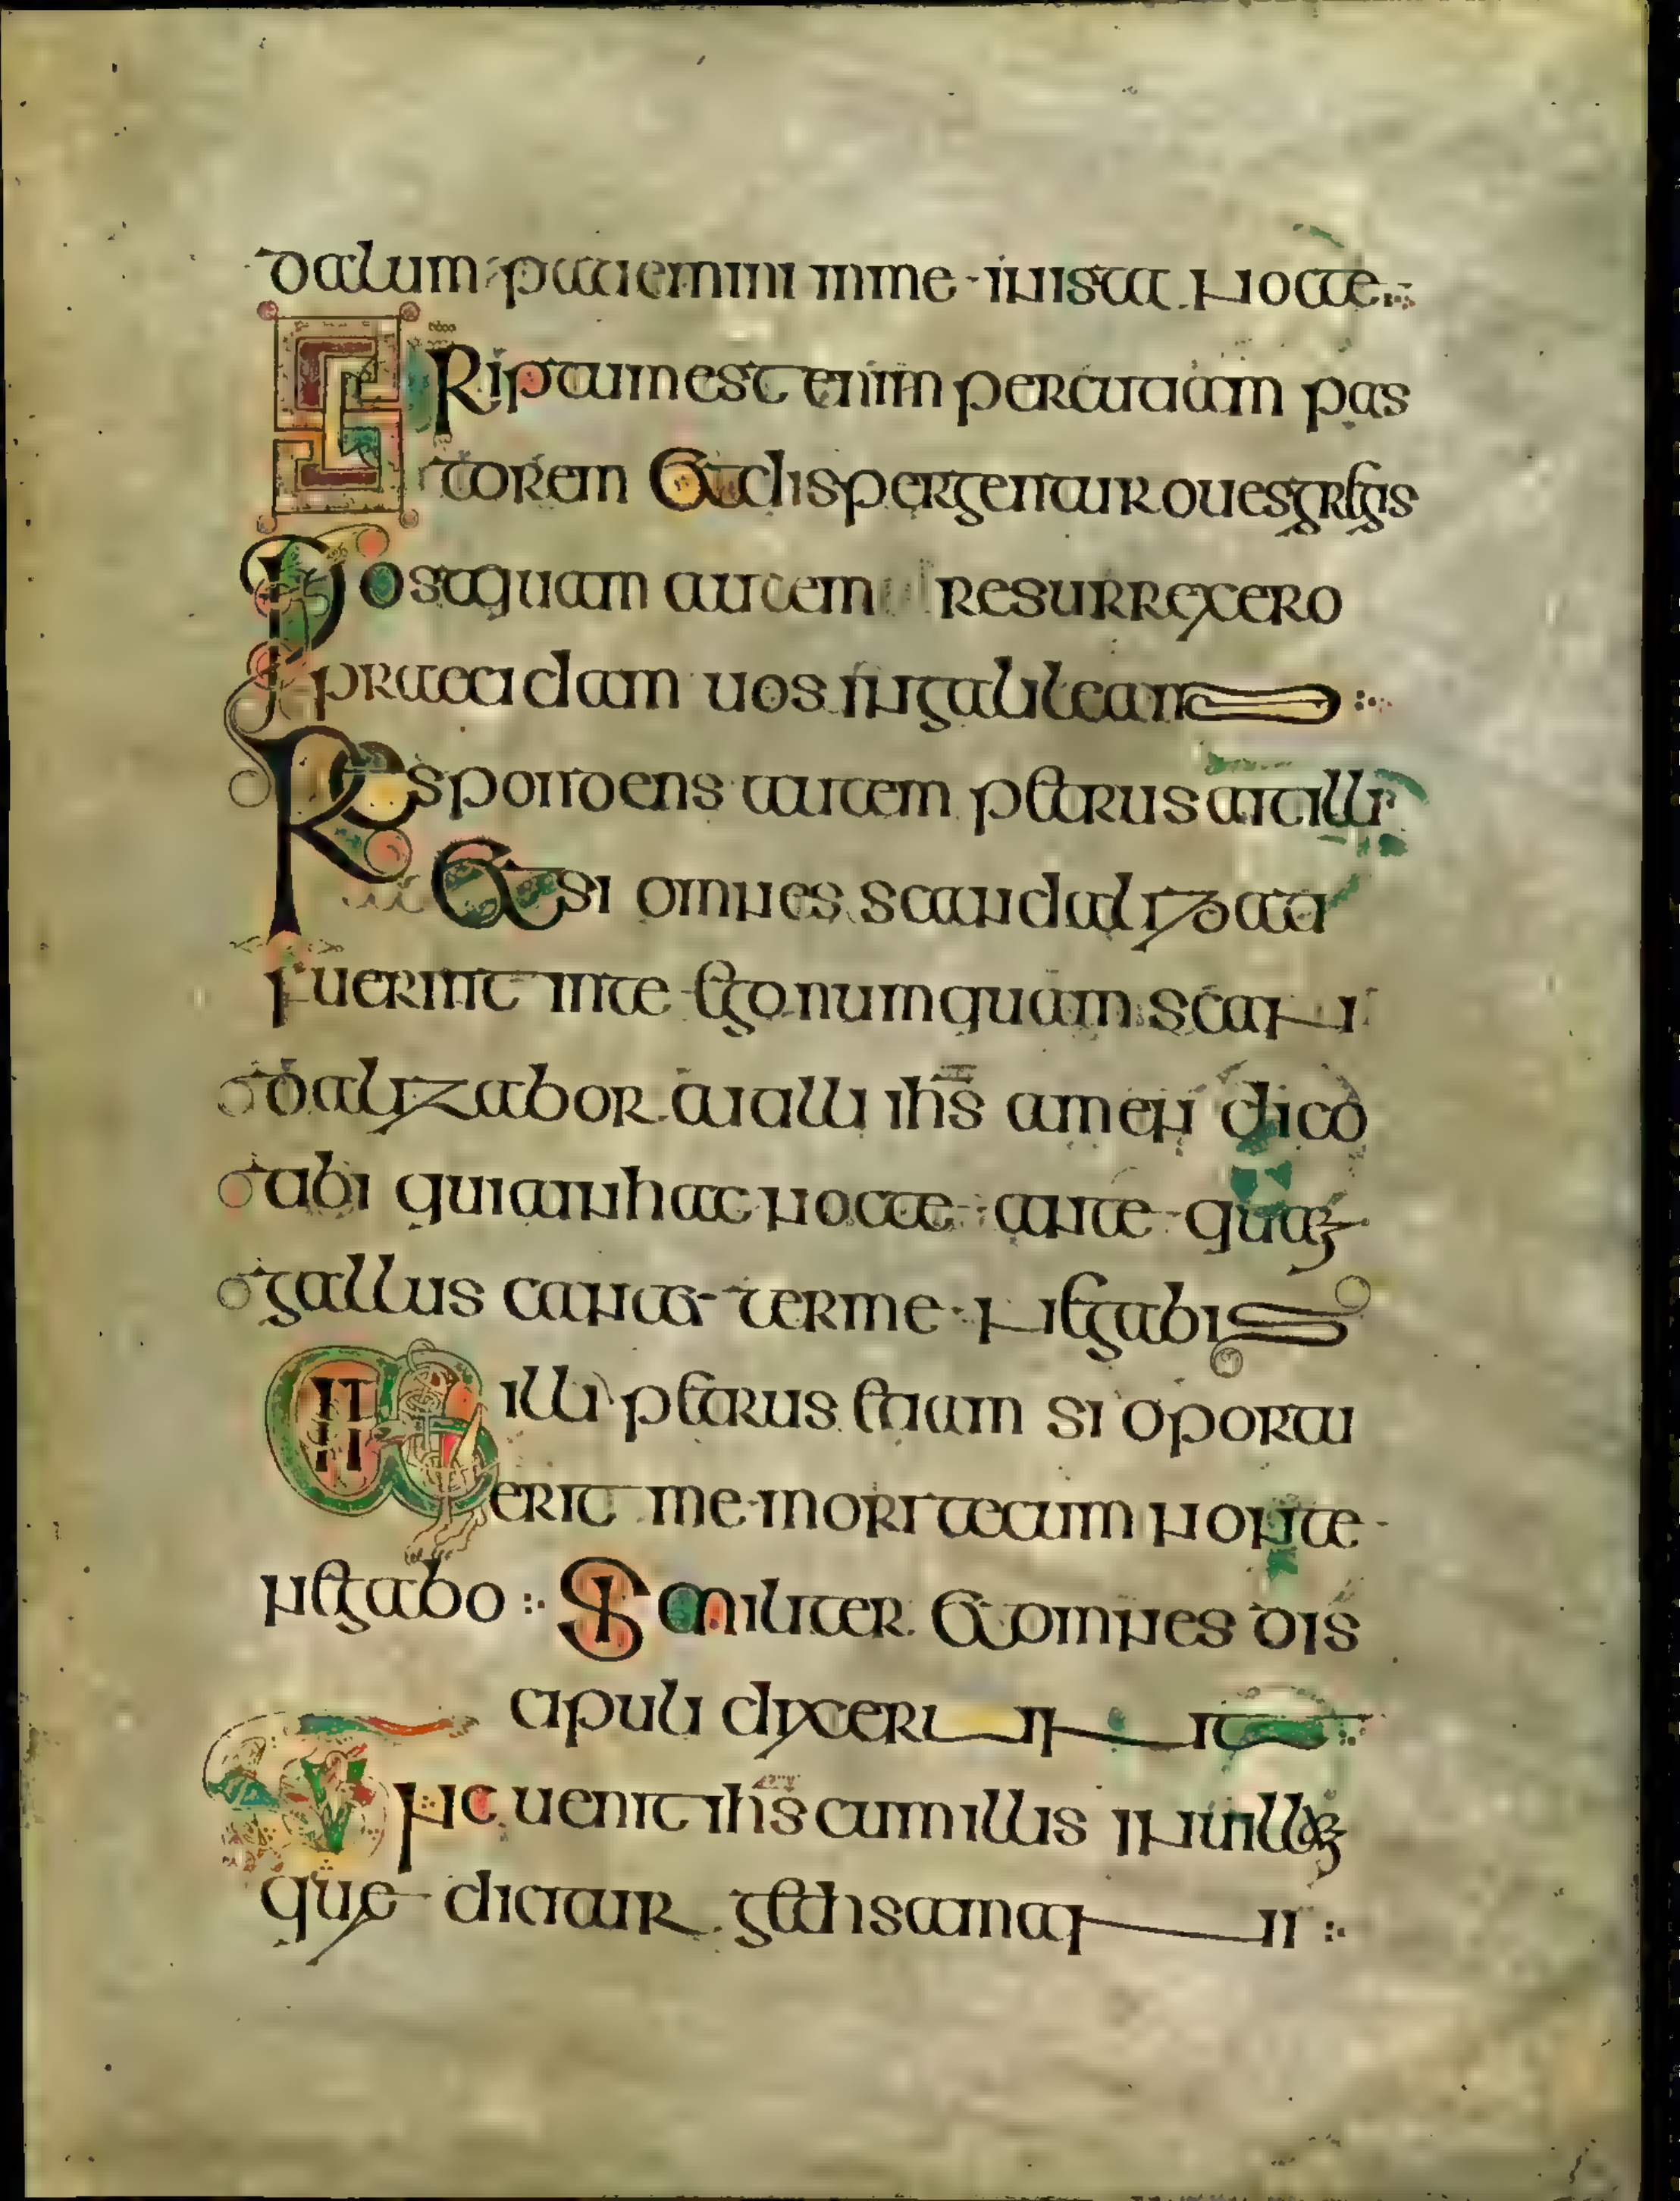 dalum patiemini inme in ista nocte
Scriptum est enim percutiam pas
torem et dispergentur oues gregis
Postquam autem resurrexero
praecidam uos in galileam
Respondens autem petrus ait illi
Et si omnes scandalizati
fuerint in te ego numquam scan
dalizabor ait illi ihs amen dico
tibi quia in hac nocte ante quam
gallus cantet ter me negabis
Ait illi petrus etiam si oportu
erit me mori tecum non te
negabo Similiter et omnes dis
cipuli dixerunt
Tunc uenit ihs cum illis in uillam
que dicitur gethsamani